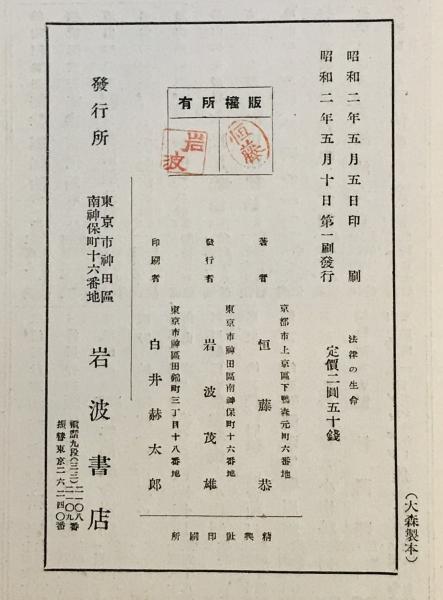 昭和二年五月五日印刷
昭和二年五月十日第一刷發行
法律の生命
定價二圓五十錢
版權所有
恒藤
岩波
京都市上京區下鴨森元町六番地
著者 恒藤恭
東京市神田區南神保町十六番地
發行者 岩波茂雄
東京市神田區錦町三丁目十八番地
印刷者 白井赫太郎
精興社印刷所
發行所
東京市神田區
南神保町十六番地
岩波書店
電話九段(33)二一〇八
二一〇九番
振替東京二六二四〇番
(大森製本)